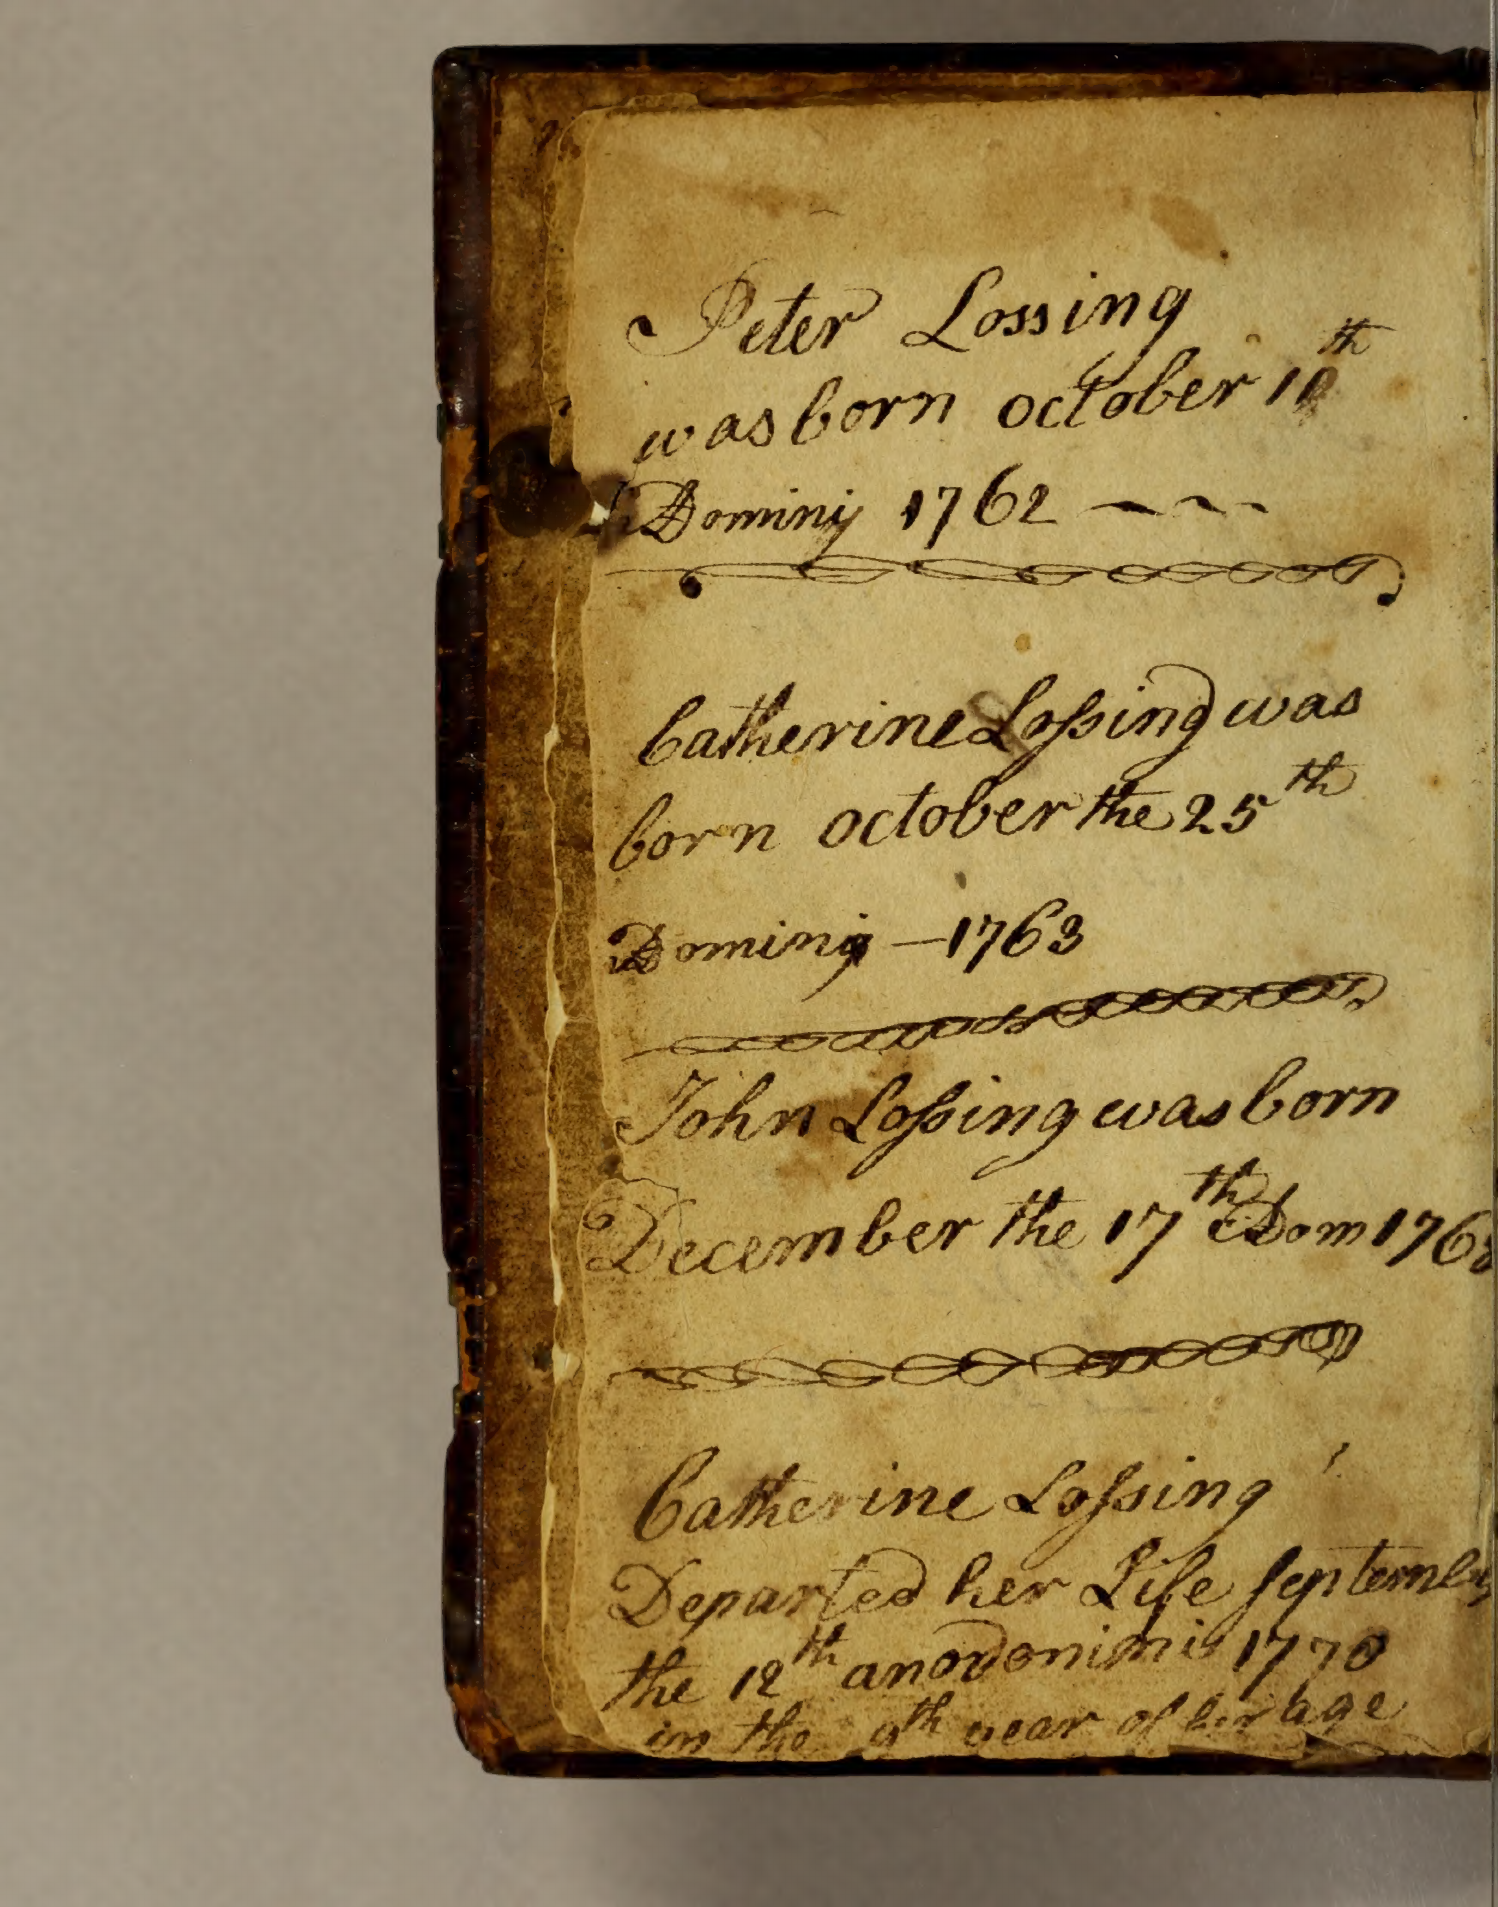 Peter Lossing
was born october 10th
Dominij 1762
Catherine Lossing was
born october the 25th
Dominij - 1763
John Lossing was born
December the 17th Dom 176
Catherine Lossing
Departed her Life September
the 12th anodonimi 1770
in the 9th year of her age